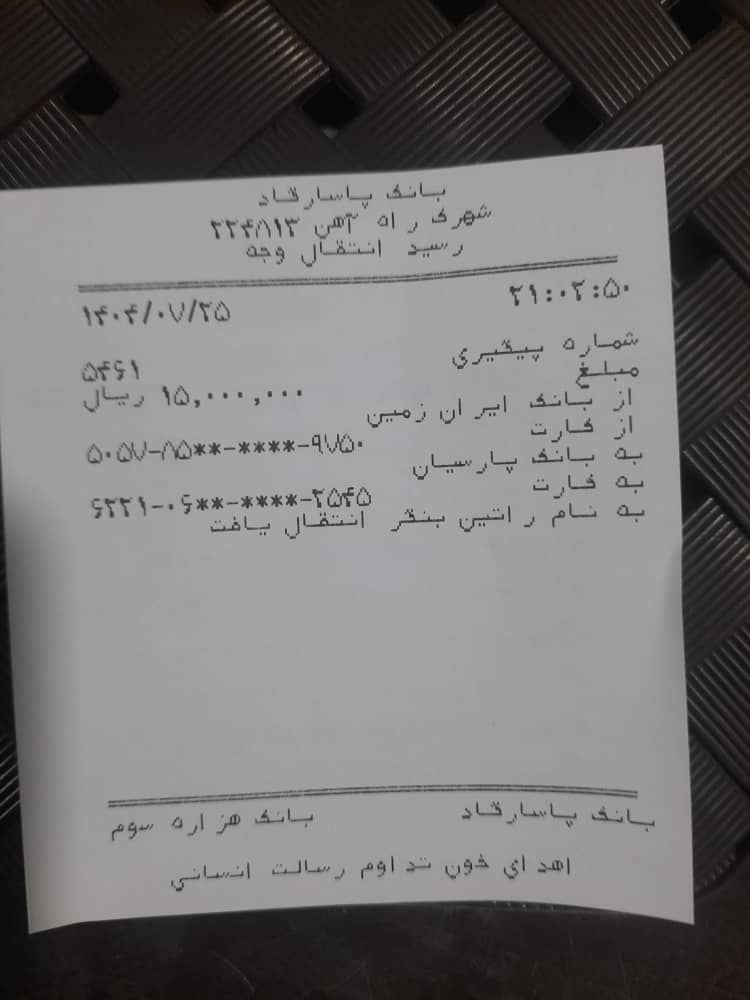 بانک پاسارگاد
شهرک راه آهن ۲۲۴۸۱۳
رسید انتقال وجه
۲۱:۰۲:۵۰ ۱۴۰۴/۰۷/۲۵
شماره پیگیري ۵۴۶۱
مبلغ ۱۵,۰۰۰,۰۰۰ ریال
از بانک ایران زمین
از کارت ۵۰۵۷-۸۵**-****-۹۷۵۰
به بانک پارسیان
به کارت ۶۲۲۱-۰۶**-****-۲۵۴۵
به نام راتین بنگر انتقال یافت
بانک پاسارگاد بانک هزاره سوم
اهداي خون تداوم رسالت انساني